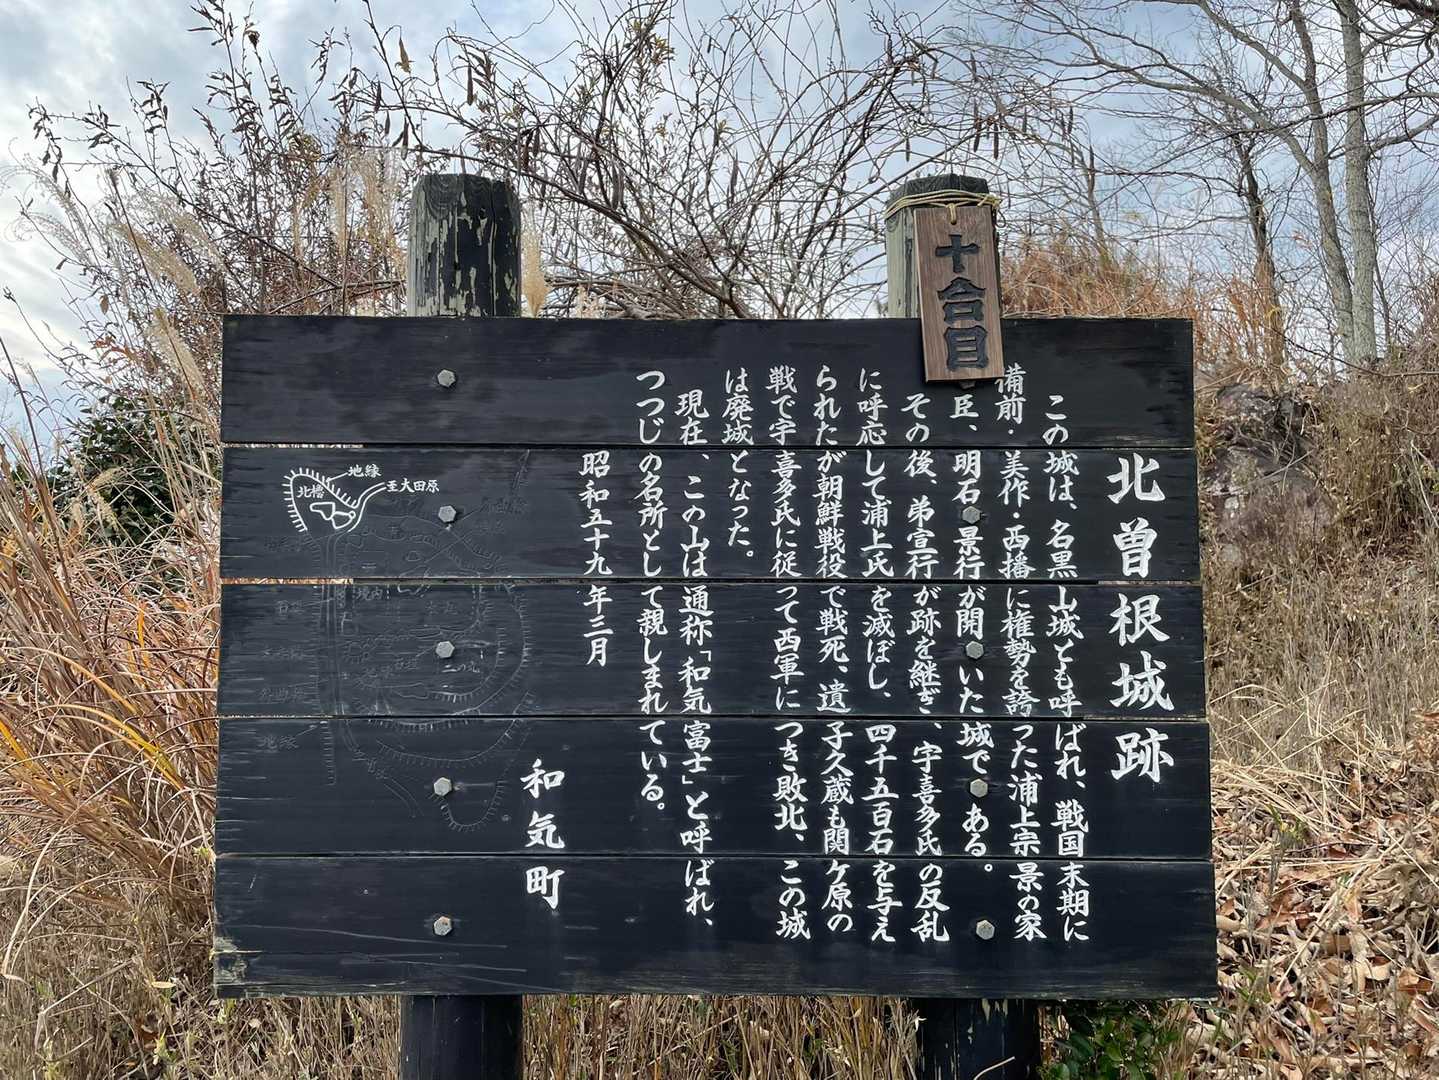 十合目
北曽根城跡
この城は、名黒山城とも呼ばれ、戦国末期に
備前・美作・西播に権勢を誇った浦上宗景の家
臣、明石景行が開いた城である。
その後、弟宣行が跡を継ぎ、宇喜多氏の反乱
に呼応して浦上氏を滅ぼし、四千五百石を与え
られたが朝鮮戦役で戦死、遺子久蔵も関ケ原の
戦で宇喜多氏に従って西軍につき敗北、この城
は廃城となった。
現在、この山は通称「和気富士」と呼ばれ、
つつじの名所として親しまれている。
昭和五十九年三月
和気町
地縁
至大田原
北櫓
境内
二の丸
地縁